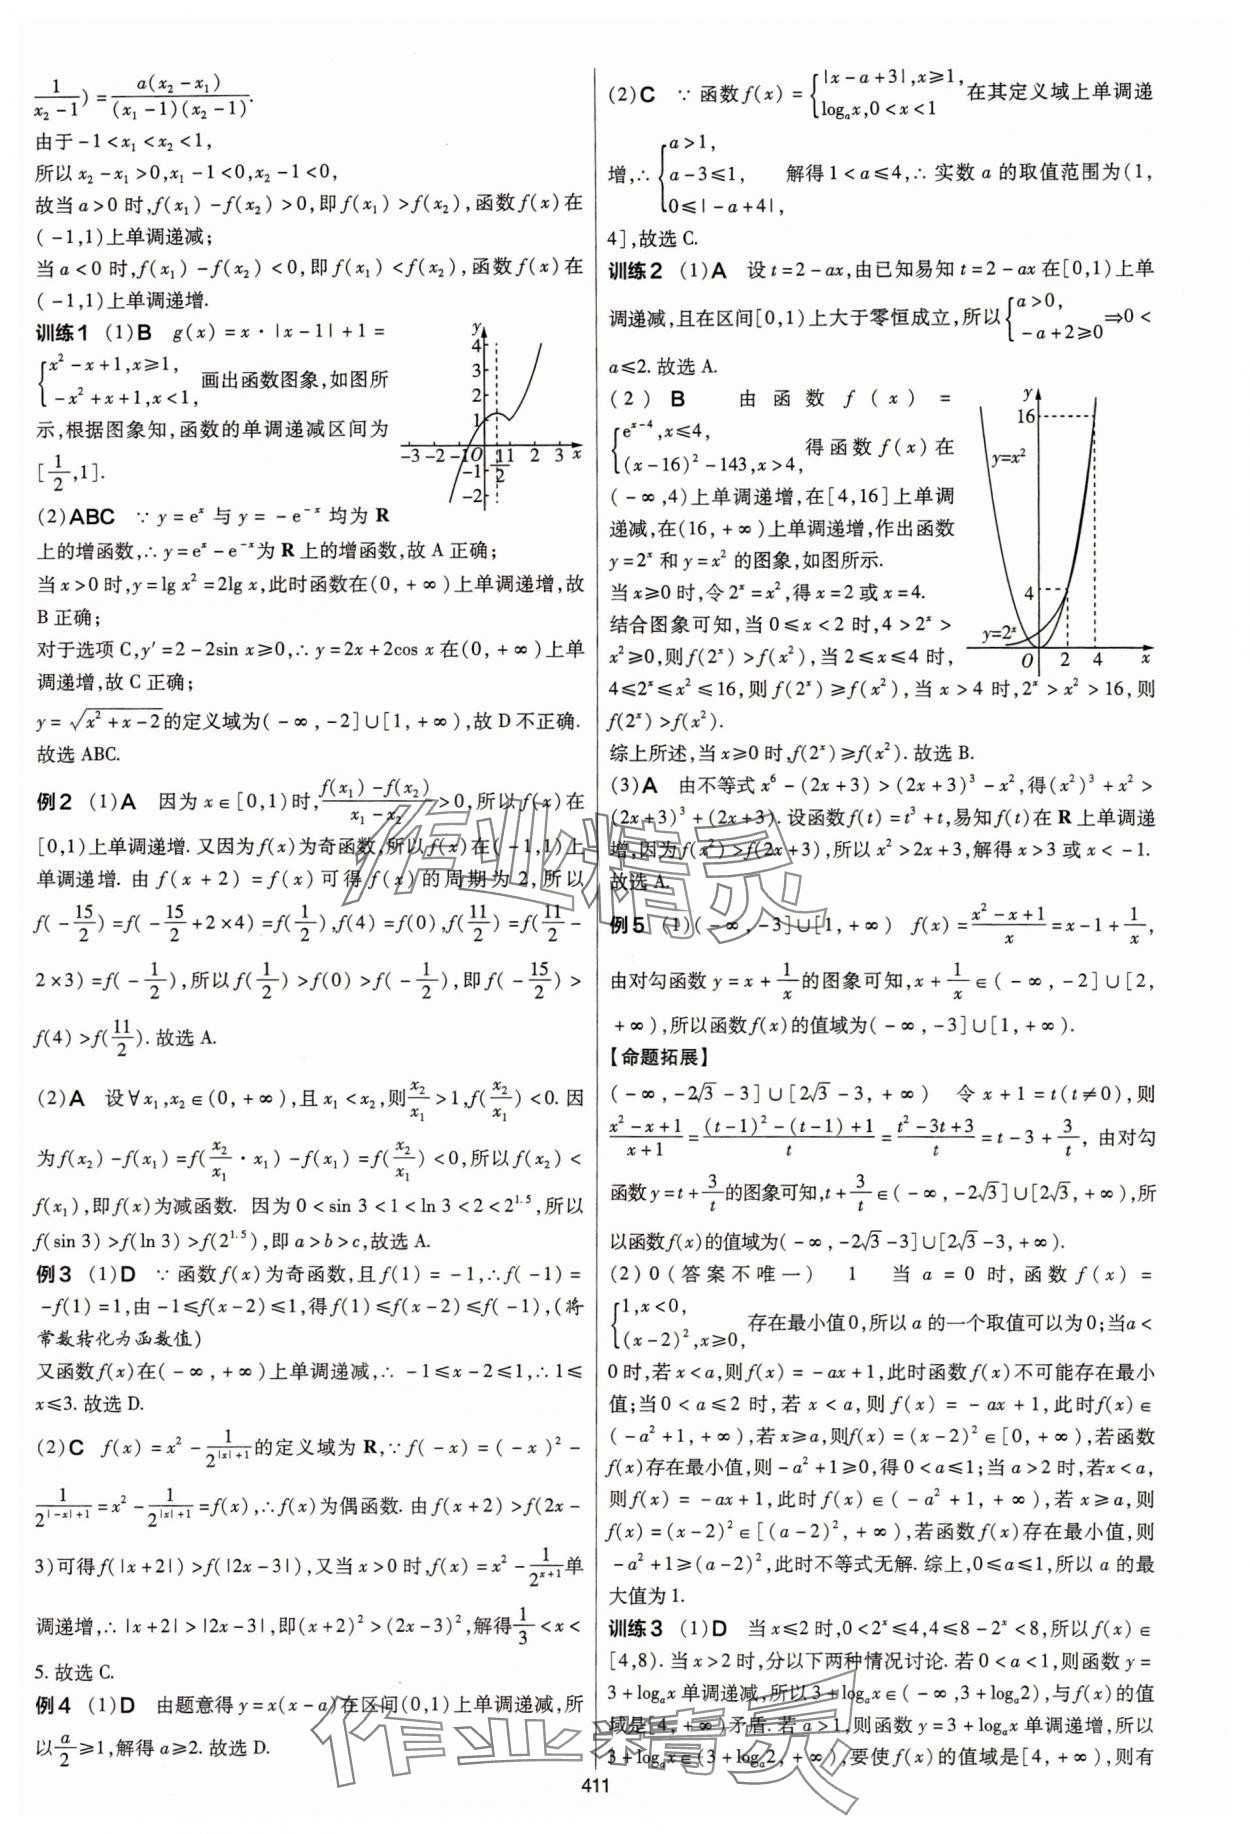 1/(x₂-1))=a(x₂-x₁)/((x₁-1)(x₂-1)).
由于-1<x₁<x₂<1,
所以x₂-x₁>0,x₁-1<0,x₂-1<0,
故当a>0时,f(x₁)-f(x₂)>0,即f(x₁)>f(x₂),函数f(x)在
(-1,1)上单调递减;
当a<0时,f(x₁)-f(x₂)<0,即f(x₁)<f(x₂),函数f(x)在
(-1,1)上单调递增.
训练1 (1)B g(x)=x·|x-1|+1=
{x²-x+1,x≥1, -x²+x+1,x<1, 画出函数图象,如图所
示,根据图象知,函数的单调递减区间为
[1/2,1].
y 4 3 2 1 -3 -2 -1 O 1/2 1 2 3 x -1 -2
(2)ABC ∵y=eˣ与y=-e⁻ˣ均为R
上的增函数,∴y=eˣ-e⁻ˣ为R上的增函数,故A正确;
当x>0时,y=lg x²=2lg x,此时函数在(0,+∞)上单调递增,故
B正确;
对于选项C,y'=2-2sin x≥0,∴y=2x+2cos x在(0,+∞)上单
调递增,故C正确;
y=√(x²+x-2)的定义域为(-∞,-2]∪[1,+∞),故D不正确.
故选ABC.
例2 (1)A 因为x∈[0,1)时,(f(x₁)-f(x₂))/(x₁-x₂)>0,所以f(x)在
[0,1)上单调递增.又因为f(x)为奇函数,所以f(x)在(-1,1)上
单调递增.由f(x+2)=f(x)可得f(x)的周期为2,所以
f(-15/2)=f(-15/2+2×4)=f(1/2),f(4)=f(0),f(11/2)=f(11/2-
2×3)=f(-1/2),所以f(1/2)>f(0)>f(-1/2),即f(-15/2)>
f(4)>f(11/2).故选A.
(2)A 设∀x₁,x₂∈(0,+∞),且x₁<x₂,则x₂/x₁>1,f(x₂/x₁)<0.因
为f(x₂)-f(x₁)=f(x₂/x₁·x₁)-f(x₁)=f(x₂/x₁)<0,所以f(x₂)<
f(x₁),即f(x)为减函数.因为0<sin 3<1<ln 3<2<2^1.5,所以
f(sin 3)>f(ln 3)>f(2^1.5),即a>b>c,故选A.
例3 (1)D ∵函数f(x)为奇函数,且f(1)=-1,∴f(-1)=
-f(1)=1,由-1≤f(x-2)≤1,得f(1)≤f(x-2)≤f(-1),(将
常数转化为函数值)
又函数f(x)在(-∞,+∞)上单调递减,∴-1≤x-2≤1,∴1≤
x≤3.故选D.
(2)C f(x)=x²-1/2^(|x|+1)的定义域为R,∵f(-x)=(-x)²-
1/2^(|-x|+1)=x²-1/2^(|x|+1)=f(x),∴f(x)为偶函数.由f(x+2)>f(2x-
3)可得f(|x+2|)>f(|2x-3|),又当x>0时,f(x)=x²-1/2^(x+1)单
调递增,∴|x+2|>|2x-3|,即(x+2)²>(2x-3)²,解得1/3<x<
5.故选C.
例4 (1)D 由题意得y=x(x-a)在区间(0,1)上单调递减,所
以a/2≥1,解得a≥2.故选D.
(2)C ∵函数f(x)={|x-a+3|,x≥1, logₐx,0<x<1 在其定义域上单调递
增,∴{a>1, a-3≤1, 0≤|-a+4|, 解得1<a≤4,∴实数a的取值范围为(1,
4],故选C.
训练2 (1)A 设t=2-ax,由已知易知t=2-ax在[0,1)上单
调递减,且在区间[0,1)上大于零恒成立,所以{a>0, -a+2≥0⇒0<
a≤2.故选A.
(2)B 由函数f(x)=
{e^(x-4),x≤4, (x-16)²-143,x>4, 得函数f(x)在
(-∞,4)上单调递增,在[4,16]上单调
递减,在(16,+∞)上单调递增,作出函数
y=2ˣ和y=x²的图象,如图所示.
y 16 y=x² 4 y=2ˣ O 2 4 x
当x≥0时,令2ˣ=x²,得x=2或x=4.
结合图象可知,当0≤x<2时,4>2ˣ>
x²≥0,则f(2ˣ)>f(x²),当2≤x≤4时,
4≤2ˣ≤x²≤16,则f(2ˣ)≥f(x²),当x>4时,2ˣ>x²>16,则
f(2ˣ)>f(x²).
综上所述,当x≥0时,f(2ˣ)≥f(x²).故选B.
(3)A 由不等式x⁶-(2x+3)>(2x+3)³-x²,得(x²)³+x²>
(2x+3)³+(2x+3).设函数f(t)=t³+t,易知f(t)在R上单调递
增,因为f(x²)>f(2x+3),所以x²>2x+3,解得x>3或x<-1.
故选A.
例5 (1)(-∞,-3]∪[1,+∞) f(x)=(x²-x+1)/x=x-1+1/x,
由对勾函数y=x+1/x的图象可知,x+1/x∈(-∞,-2]∪[2,
+∞),所以函数f(x)的值域为(-∞,-3]∪[1,+∞).
【命题拓展】
(-∞,-2√3-3]∪[2√3-3,+∞) 令x+1=t(t≠0),则
(x²-x+1)/(x+1)=((t-1)²-(t-1)+1)/t=(t²-3t+3)/t=t-3+3/t,由对勾
函数y=t+3/t的图象可知,t+3/t∈(-∞,-2√3]∪[2√3,+∞),所
以函数f(x)的值域为(-∞,-2√3-3]∪[2√3-3,+∞).
(2)0(答案不唯一) 1 当a=0时,函数f(x)=
{1,x<0, (x-2)²,x≥0, 存在最小值0,所以a的一个取值可以为0;当a<
0时,若x<a,则f(x)=-ax+1,此时函数f(x)不可能存在最小
值;当0<a≤2时,若x<a,则f(x)=-ax+1,此时f(x)∈
(-a²+1,+∞),若x≥a,则f(x)=(x-2)²∈[0,+∞),若函数
f(x)存在最小值,则-a²+1≥0,得0<a≤1;当a>2时,若x<a,
则f(x)=-ax+1,此时f(x)∈(-a²+1,+∞),若x≥a,则
f(x)=(x-2)²∈[(a-2)²,+∞),若函数f(x)存在最小值,则
-a²+1≥(a-2)²,此时不等式无解.综上,0≤a≤1,所以a的最
大值为1.
训练3 (1)D 当x≤2时,0<2ˣ≤4,4≤8-2ˣ<8,所以f(x)∈
[4,8).当x>2时,分以下两种情况讨论.若0<a<1,则函数y=
3+logₐx单调递减,所以3+logₐx∈(-∞,3+logₐ2),与f(x)的值
域是[4,+∞)矛盾.若a>1,则函数y=3+logₐx单调递增,所以
3+logₐx∈(3+logₐ2,+∞),要使f(x)的值域是[4,+∞),则有
411
作业精灵
作业精灵